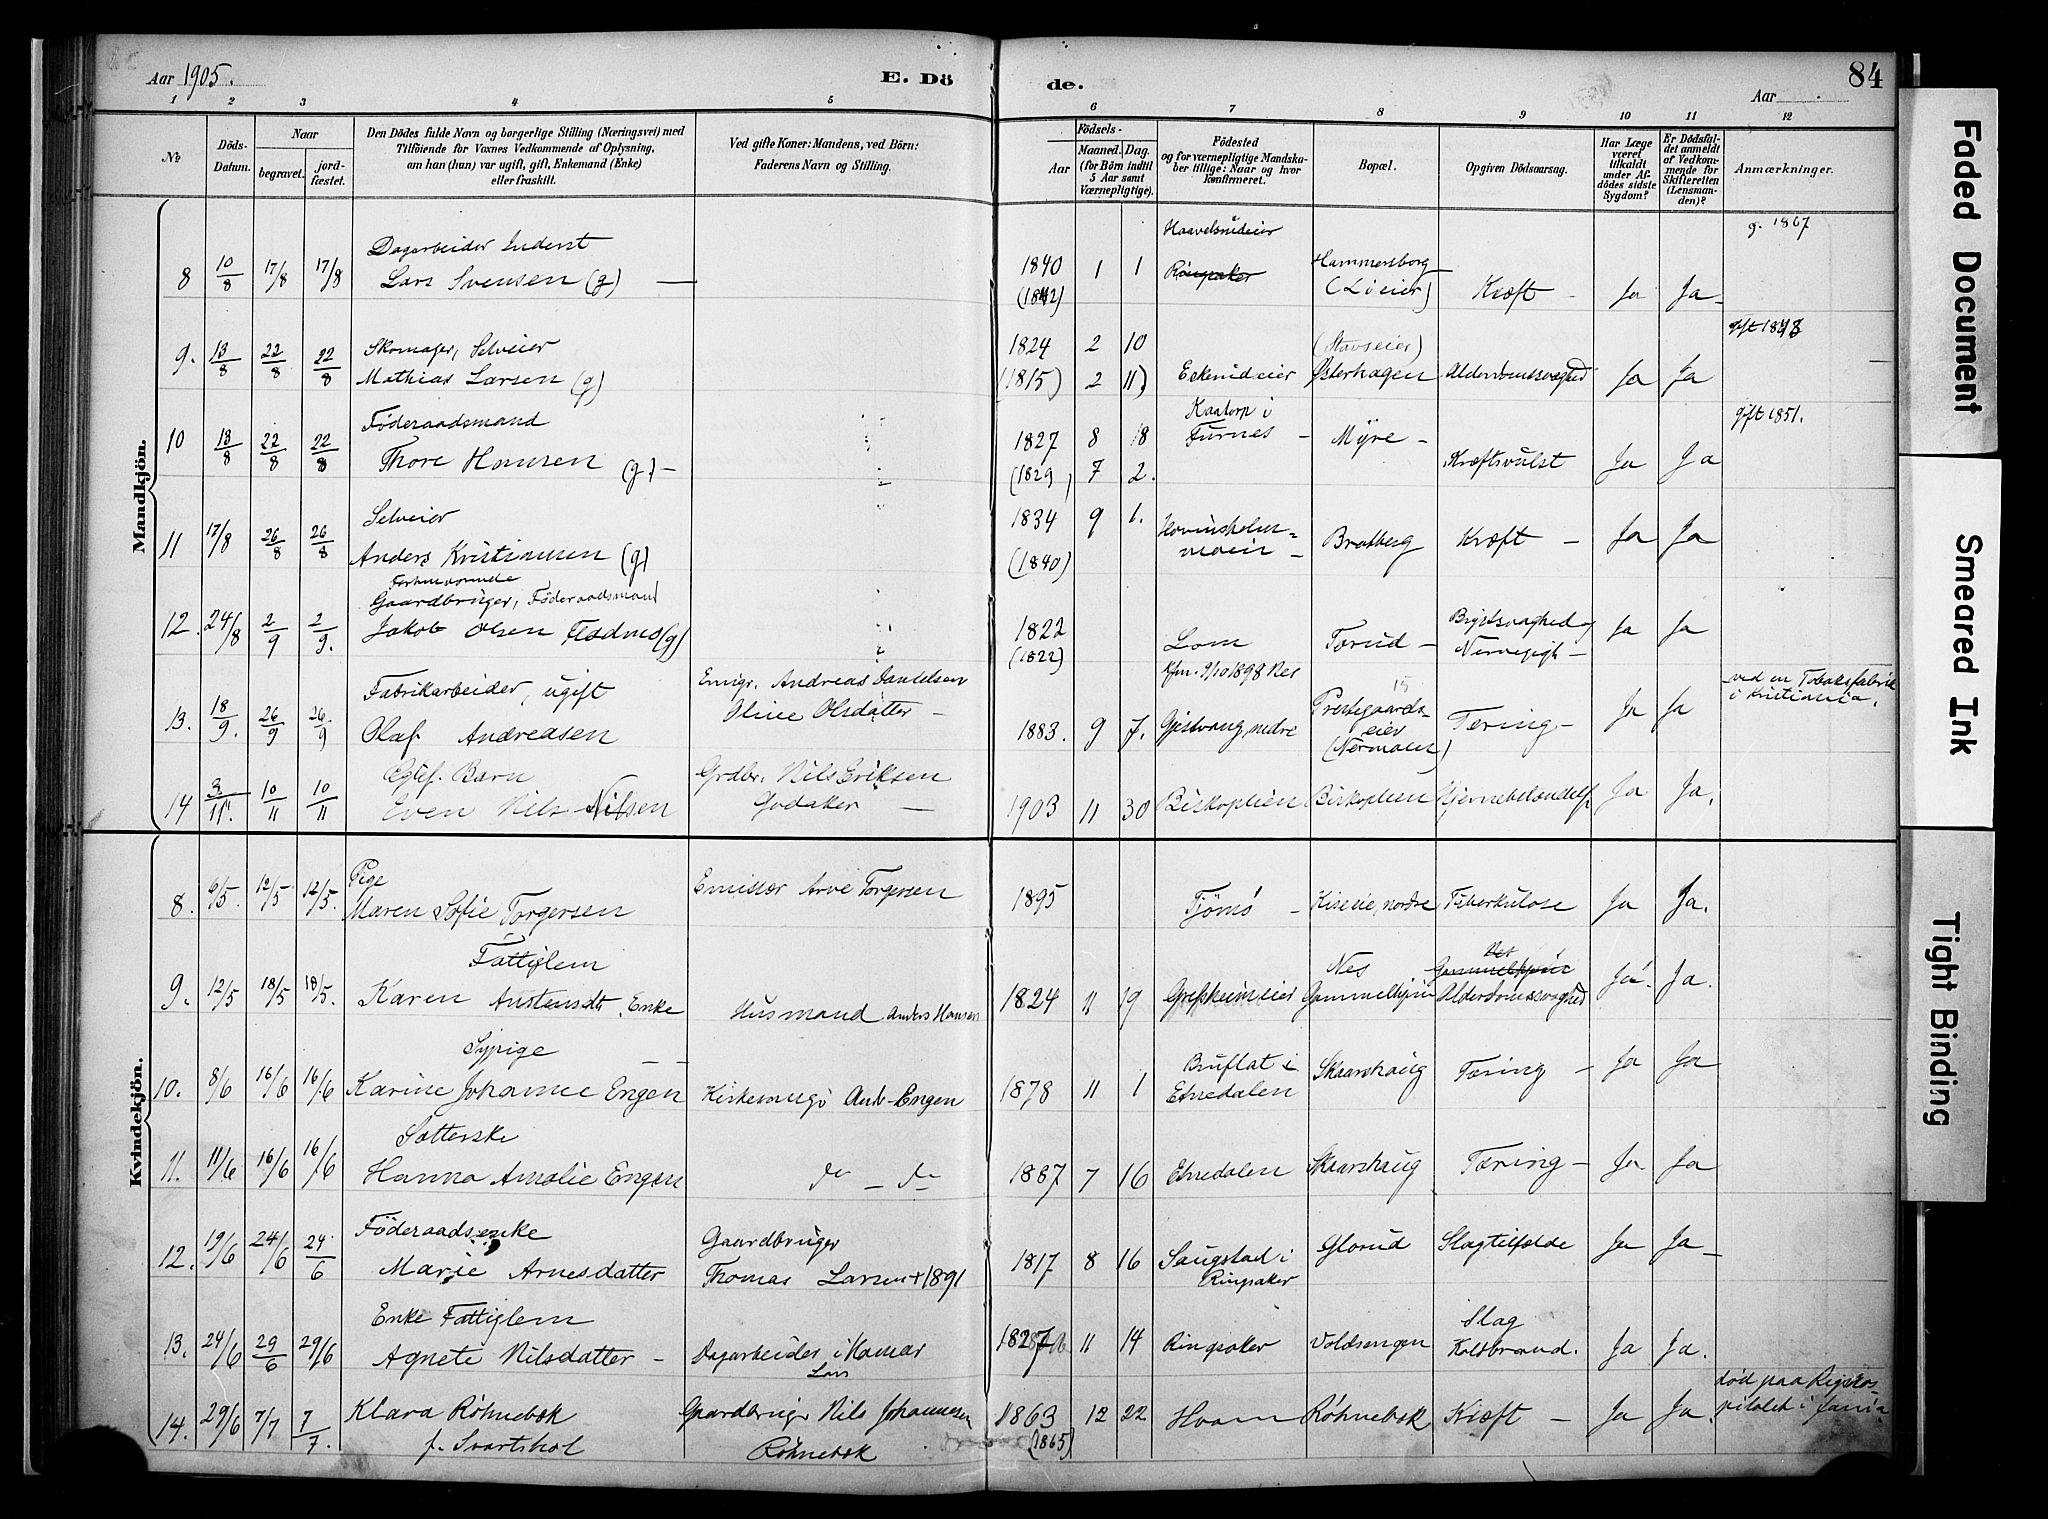 Aar 1905.
E. Dö
de.
Aar
84
1 2 3 4 5 6 7 8 9 10 11 12
No
Döds-
Datum.
Naar
begravet.
jord-
fæstet.
Den Dödes fulde Navn og borgerlige Stilling (Næringsvei) med
Tilföiende for Voxnes Vedkommende af Oplysning,
om han (hun) var ugift, gift, Enkemand (Enke)
eller fraskilt.
Ved gifte Koner: Mandens, ved Börn:
Faderens Navn og Stilling.
Födsels-
Aar
Maaned. Dag.
(for Börn indtil
5 Aar samt
Værnepligtige).
Födested
og for værnepligtige Mandska-
ber tillige: Naar og hvor
konfirmeret.
Bopæl.
Opgiven Dödsaarsag.
Har Læge
været
tilkaldt
under Af-
dödes sidste
Sygdom?
Er Dödsfal-
det anmeldt
af Vedkom-
mende for
Skifteretten
(Lensman-
den)?
Anmærkninger.
Mandkjön.
Dagarbeider Inderst Haavelsrudeier g. 1867
8 10/8 17/8 17/8 Lars Svensen (g) — 1840 1 1 Ringsaker Hammersborg Kræft — Ja Ja —
(1842) (Lieier)
Skomager, Selveier 1824 2 10 (Stavseier) gift 1848
9. 13/8 22/8 22/8 Mathias Larsen (g) (1815) 2 11) Eskerudeier Østerhagen Alderdomssvaghed Ja Ja
Föderaadsmand Kaatorp i gift 1851.
10 13/8 22/8 22/8 Thore Hansen (g) — 1827 8 18 Furnes — Myre — Kræftsvulst Ja Ja
(1829) 7 2.
Selveier 1834 9 1. Hovinsholm-
11 17/8 26/8 26/8 Anders Kristiansen (g) (1840) moen — Bratberg Kræft — Ja Ja
Forhenværende
Gaardbruger, Föderaadsmand Brystsvaghed og
12. 24/8 2/9 2/9. Jakob Olsen Fladmo (g) 1822 Lom Torud — Nervegigt — Ja Ja
(1822)
Fabrikarbeider, ugift Emigr. Andreas Danielsen Kfm. 9/10 1898 Nes ved en Tobaksfabrik
13. 18/9. 26/9 26/9 Olaf Andreasen Oline Olsdatter — 1883. 9 7. Gjestvang, nedre Prestegaards- Tæring — Ja Ja i Kristiania.
eier
(Nermoen)
Egtef. Barn Grdbr. Nils Eriksen
14 3/11. 10/11 10/11 Even Nils Nilsen Godaker — 1903 11 30 Biskoplien Biskoplien Hjernebetændelse Ja Ja.
Kvindekjön.
Pige
8. 6/5. 12/5. 12/5. Maren Sofie Torgersen Emissær Arve Torgersen 1895 Tjömö — Kiseeie, nordre Tuberkulose Ja Ja.
Fattiglem Nes Gammelhjem
9. 12/5 18/5 18/5. Karen Austensdt. Enke Husmand Anders Hansen 1824 11 19 Grefsheimeier Gammelhjem Alderdomssvaghed Ja Ja.
Sypige — — Bruflat i
10. 8/6 16/6 16/6 Karine Johanne Engen Kirkesanger Anb. Engen 1878 11 1 Etnedalen Skaarshaug Tæring — Ja Ja
Søtterske
11. 11/6 16/6 16/6 Hanna Amalie Engen do — do 1887 7 16 Etnedalen Skaarshaug Tæring — Ja Ja
Föderaadsenke Gaardbruger
12. 19/6 24/6 24/6 Marie Arnesdatter Thomas Larsen + 1891 1817 8 16 Saugstad i Glorud Slagtilfælde Ja Ja —
Ringsaker
Enke Fattiglem Slag
13. 24/6 29/6 29/6 Agnete Nilsdatter — Dagarbeider i Hamar 1827 11 14 Ringsaker Voldsengen Koldbrand. Ja Ja.
Lars
14. 29/6 7/7 7/7. Klara Röhnebæk Gaardbruger Nils Johannesen 1863 12 22 Hvam Röhnebæk Kræft — Ja Ja. död paa Rigshos-
f. Svartshol Röhnebæk (1865) pitalet i
Faded Document
Smeared Ink
Tight Binding